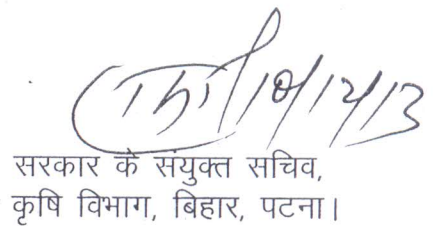 10/12/13
सरकार के संयुक्त सचिव,
कृषि विभाग, बिहार, पटना।